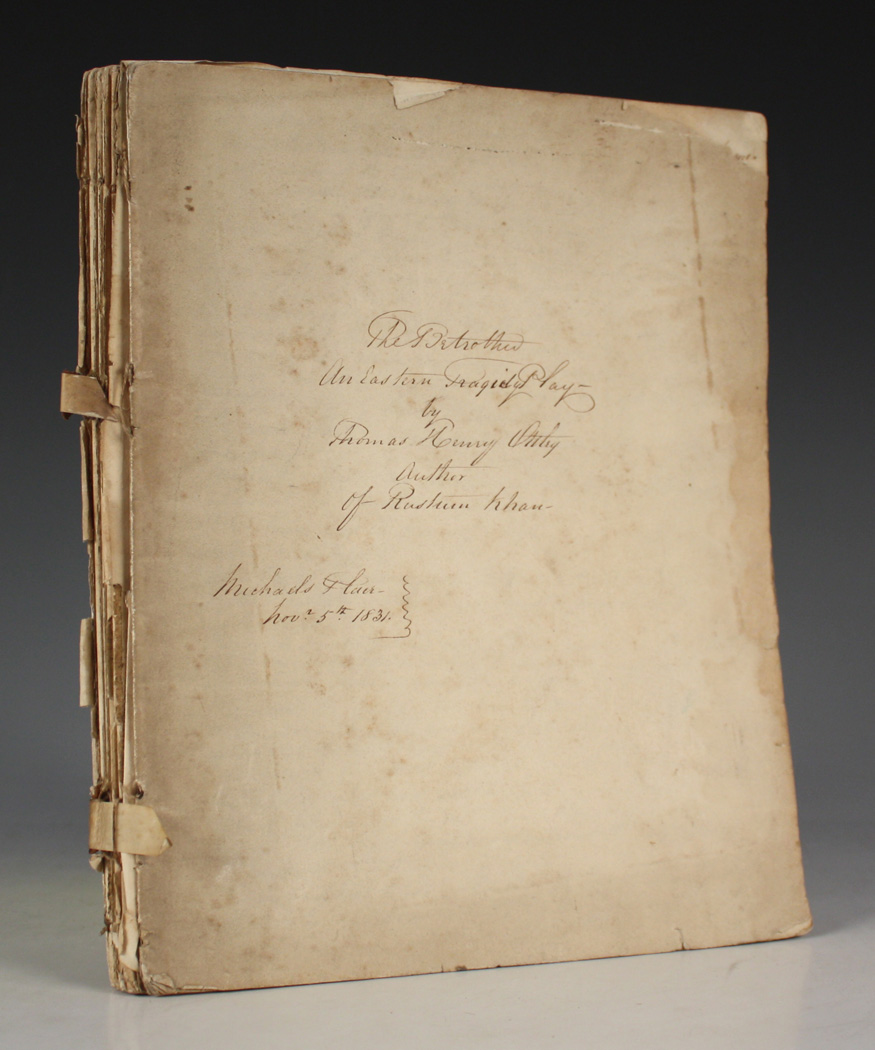 The Betrothed
An Eastern Tragedy Play—
by
Thomas Henry Ottley
Author
Of Rustum Khan—
Michaels Place—
Novr. 5th. 1831.